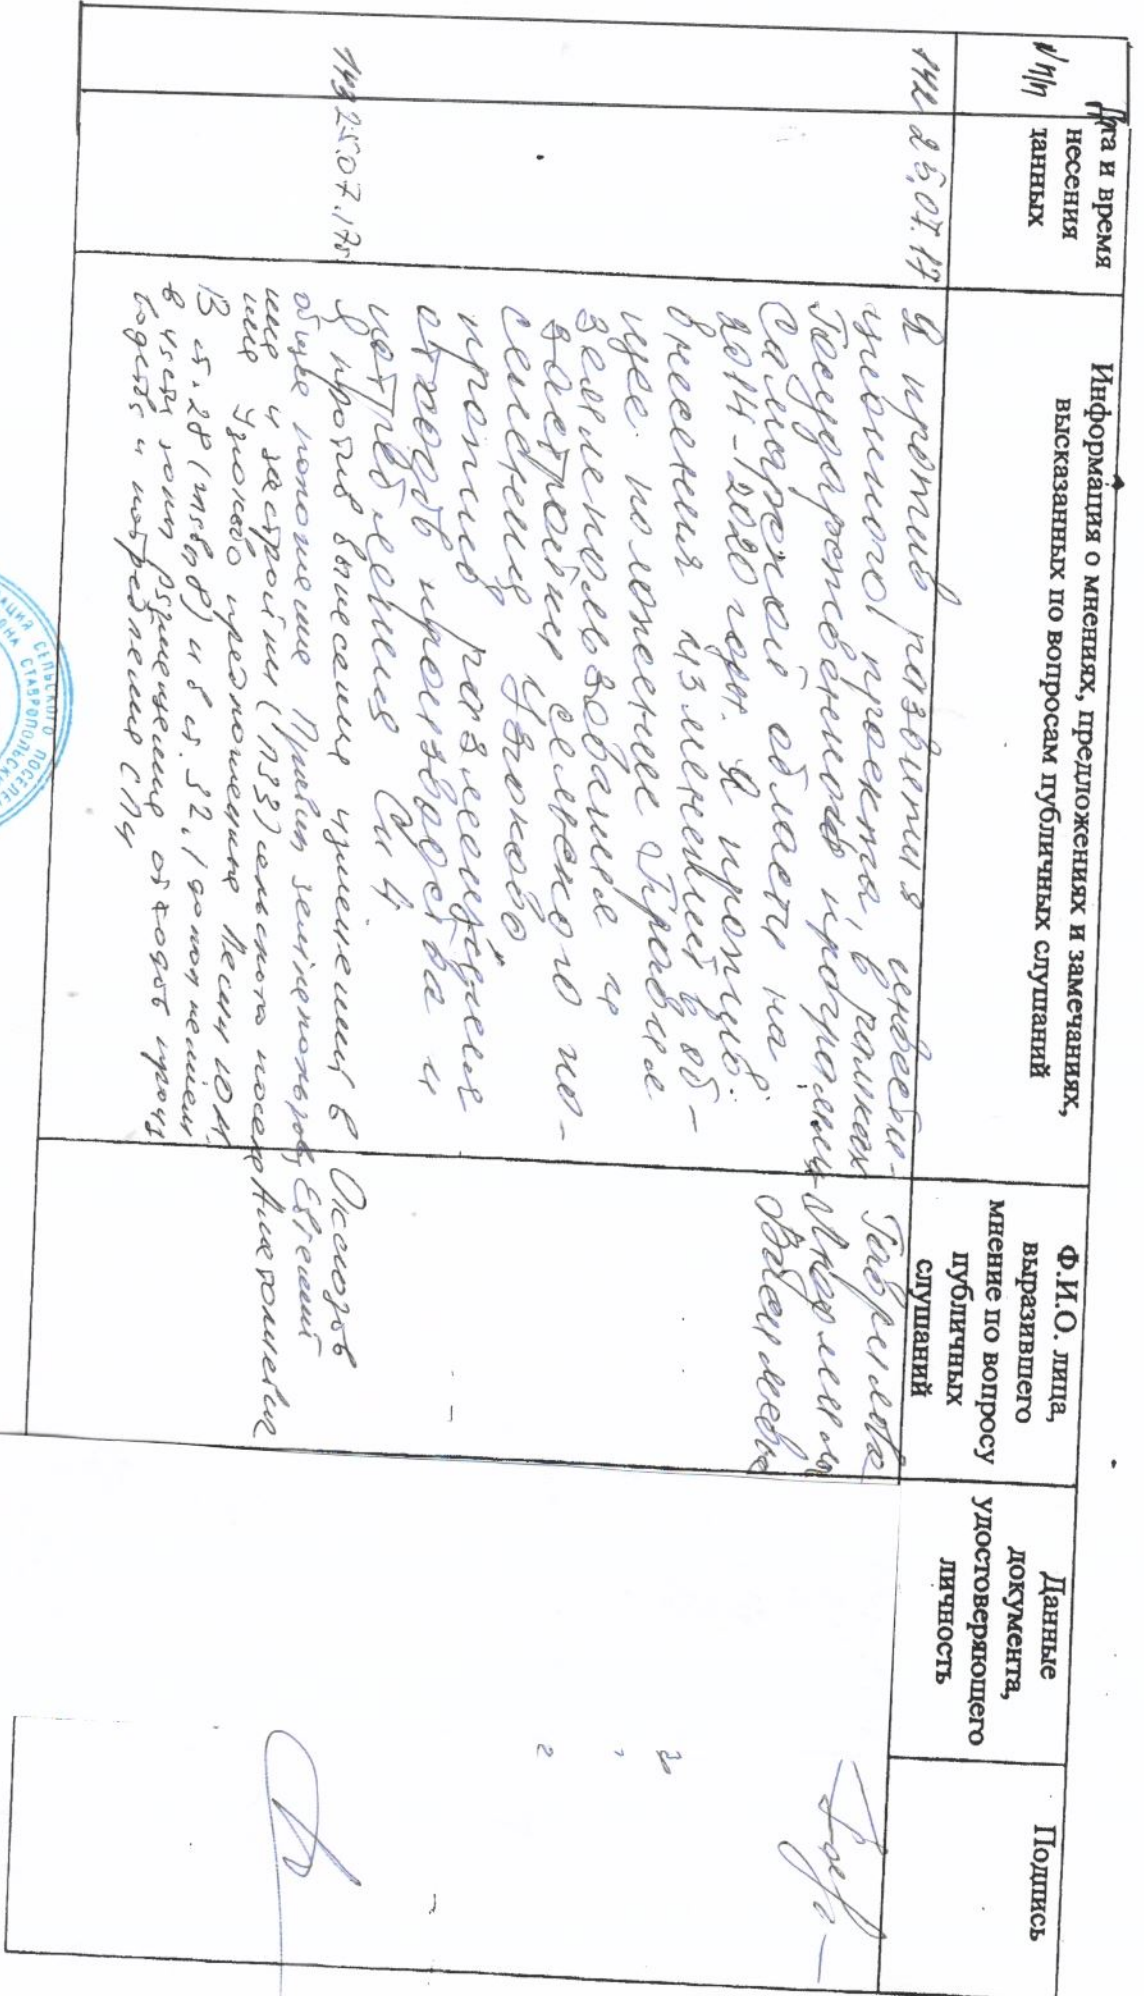 № п/п
Дата и время
несения
данных
Информация о мнениях, предложениях и замечаниях,
высказанных по вопросам публичных слушаний
Ф.И.О. лица,
выразившего
мнение по вопросу
публичных
слушаний
Данные
документа,
удостоверяющего
личность
Подпись
142 25.07.17
Я против развития инвести-
ционного проекта, в рамках
Государственной программы
Самарской области на
2014-2020 годы. Я против
внесения изменений в об-
щее положение Правил
землепользования и
застройки сельского по-
селения Узюково
против размещения
отходов производства и
потребления СПЧ
Гаврилова
Людмила
143 25.07.17г
Я против внесения изменений в
общее положение Правил землепользов
ния и застройки (ПЗЗ) сельского посел
ния Узюково предположение
В ст. 28 (табл 8) и в ст. 32.1 дополнением
в части зоны размещения отходов произ
водств и потребления СПЧ
Евгений
Анатольевич
СЕЛЬСКОГО ПОСЕЛЕ
ОНА СТАВРОПОЛЬСКИЙ